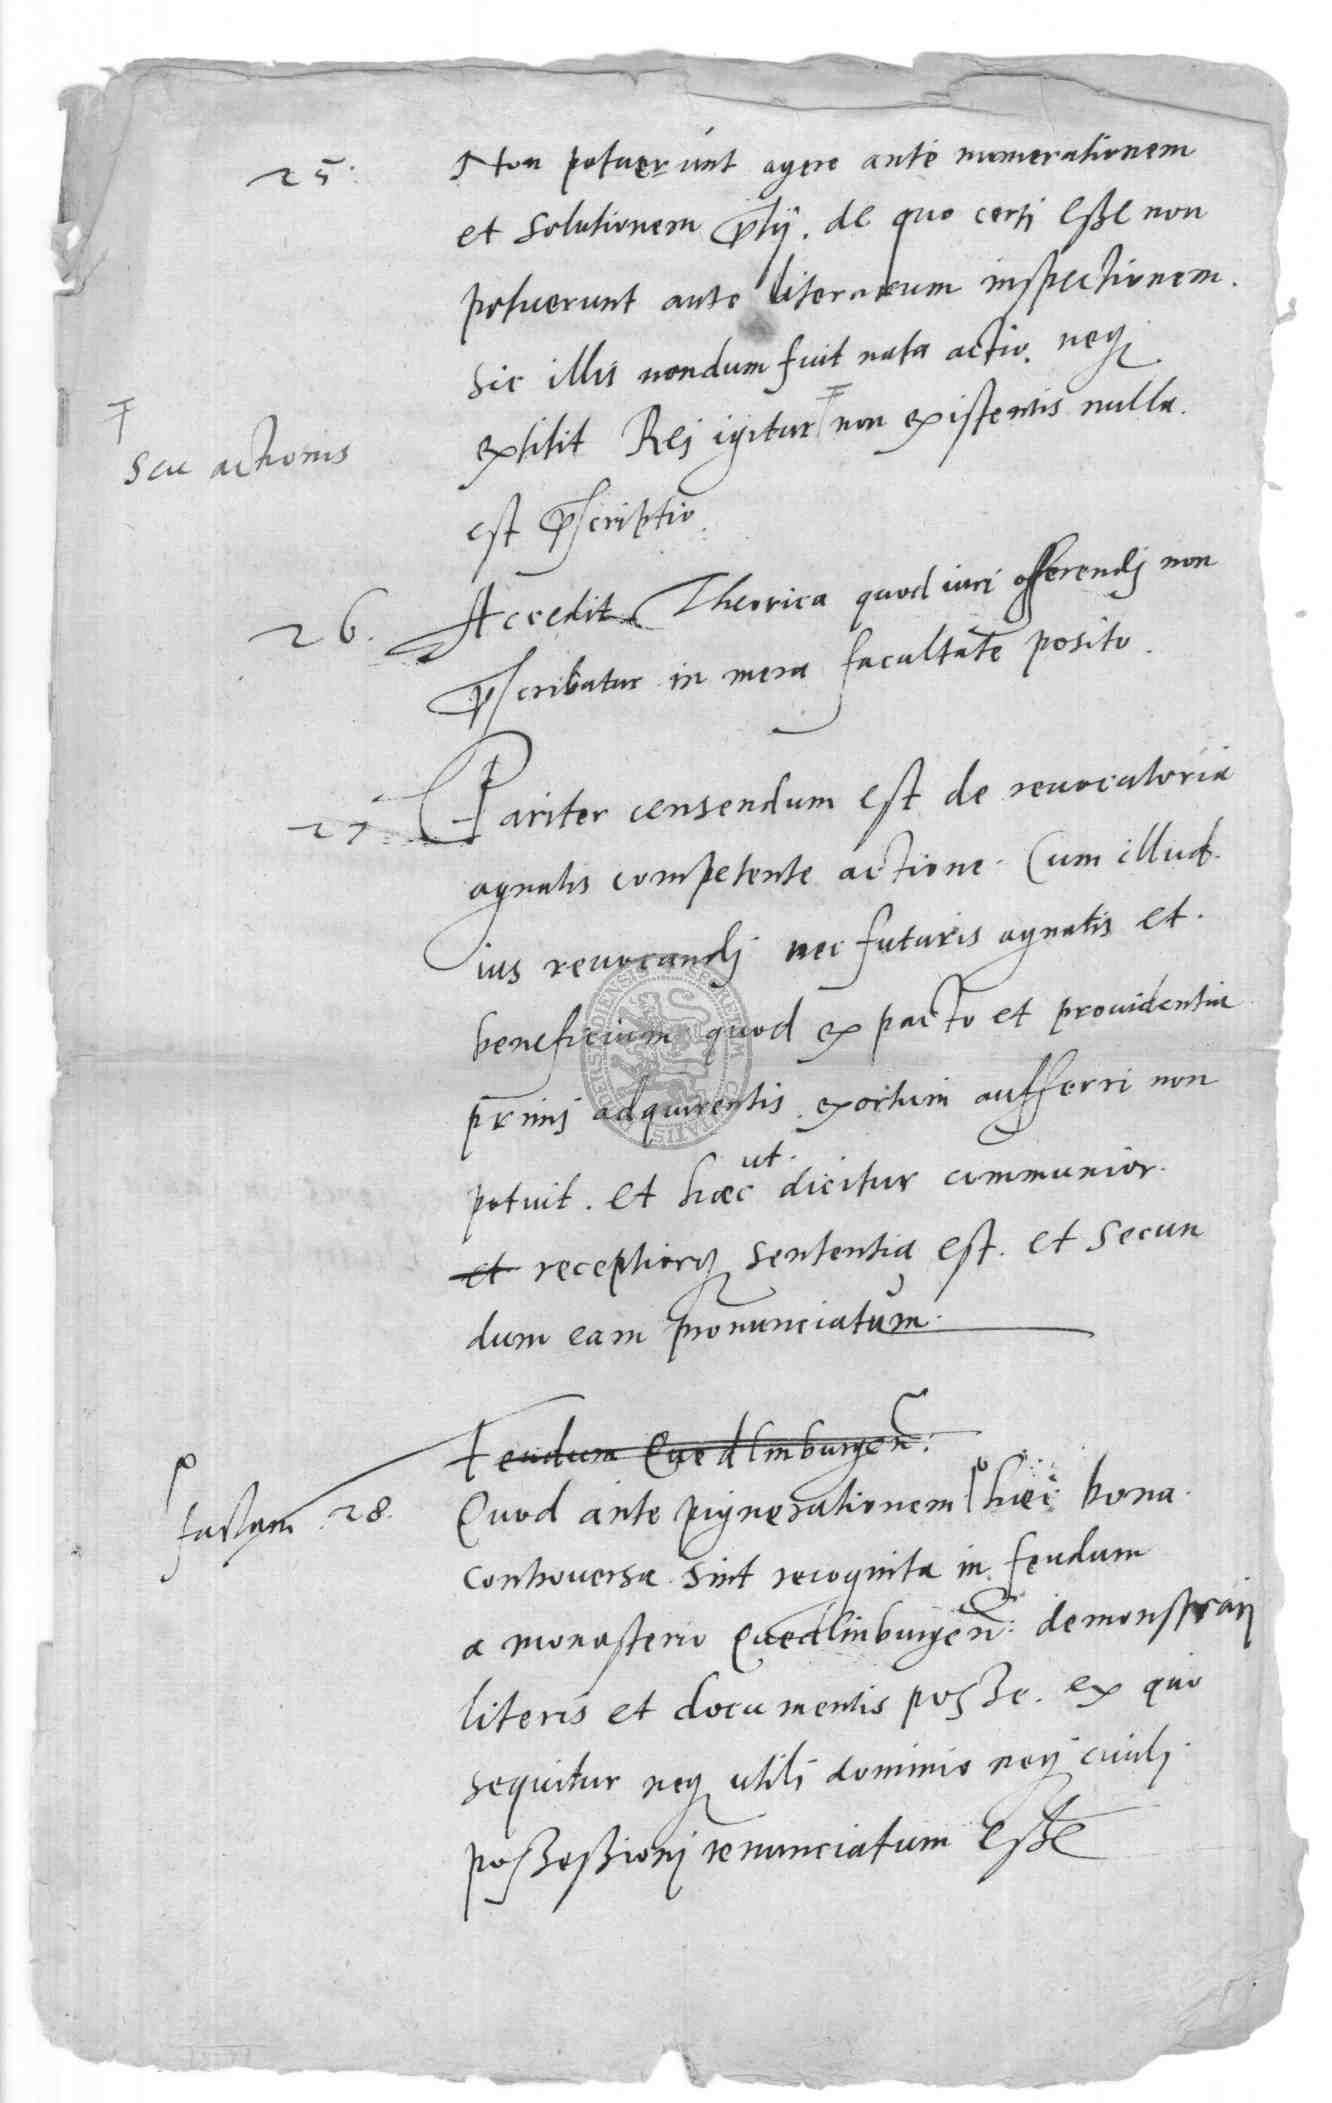 25. Non potuerunt agere ante numerationem
et solutionem p̄tij. de quo certi esse non
potuerunt ante literarum inspectionem.
Sic illis nondum fuit nata actio. neq;
extitit Rej igitur non existentis nulla.
seu actionis
est p̄scriptio.
26. Accedit Theorica quod iuri offerendj non
p̄scribatur in mera facultate posito.
27. Pariter censendum est de reuocatoria
agnatis competente actione. Cum illud.
ius reuocandj nec futuris agnatis et.
beneficium quod ex pacto et prouidentia
primj adquirentis exortum aufferri non
potuit. et hæc ut dicitur communior.
et receptiorq; sententia est. et secun
dum eam pronunciatum.
Feudum Quedlinburgen:
28. Quod ante pignerationem hæc bona.
factam
controuersa sint recognita in feudum
a monasterio Quedlinburgen: demonstrarj
literis et documentis posse. ex quo
sequitur neq; utilj dominio neq; ciuilj
possessionj renunciatum esse